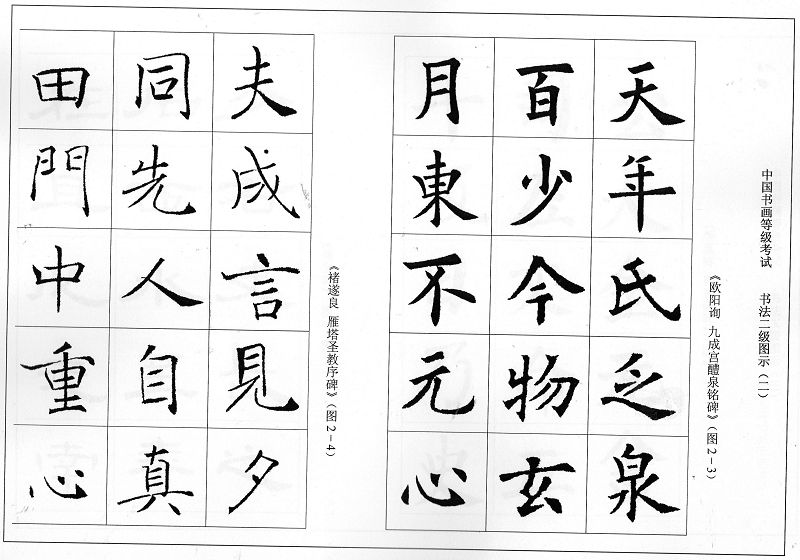 中国书画等级考试 书法二级图示（二）
《欧阳询 九成宫醴泉铭碑》（图2－3）
天年氏乏泉
百少今物玄
月東不元心
《褚遂良 雁塔圣教序碑》（图2－4）
夫成言見夕
同先人自真
田門中重心